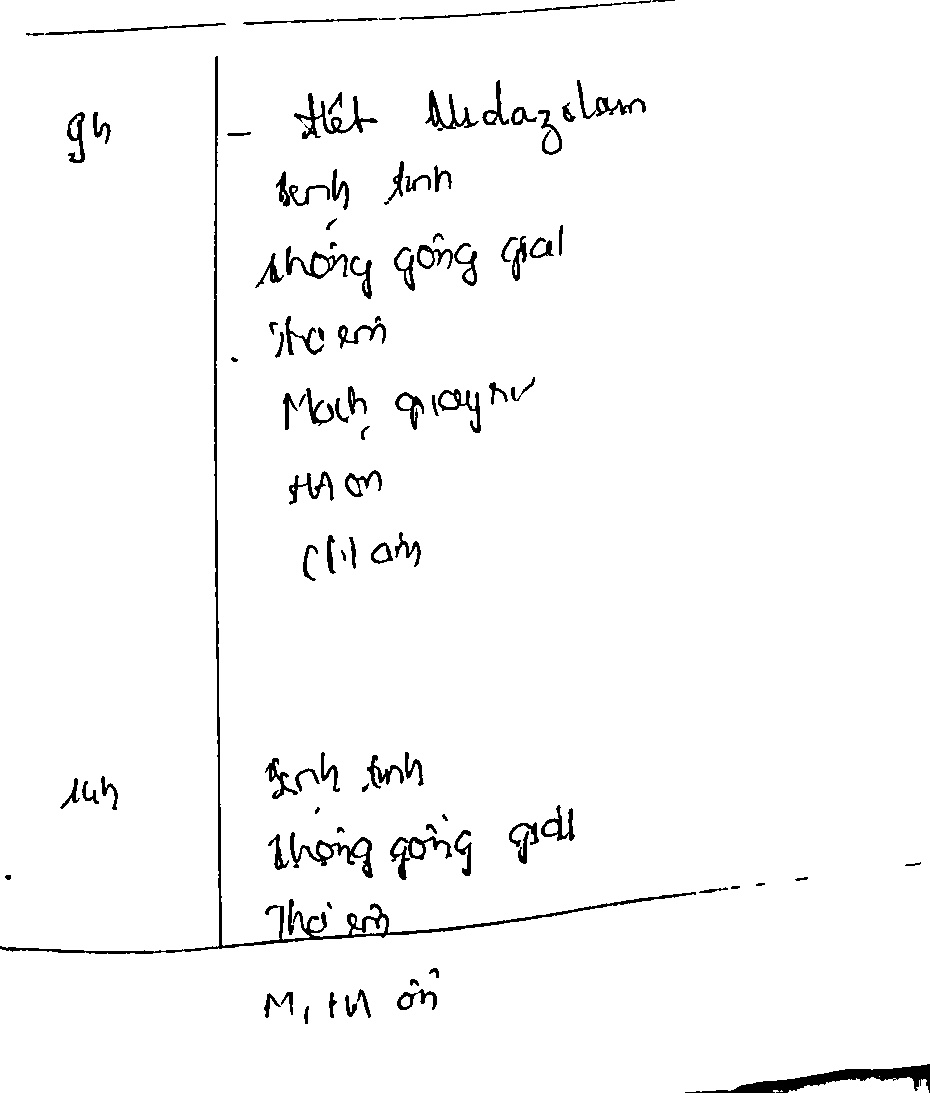 9h
- Hết Midazolam
Bệnh tỉnh
không gồng giật
Thở êm
Mạch quay rõ
HA ổn
Chi ấm
14h
Bệnh tỉnh
không gồng giật
Thở êm
M, HA ổn